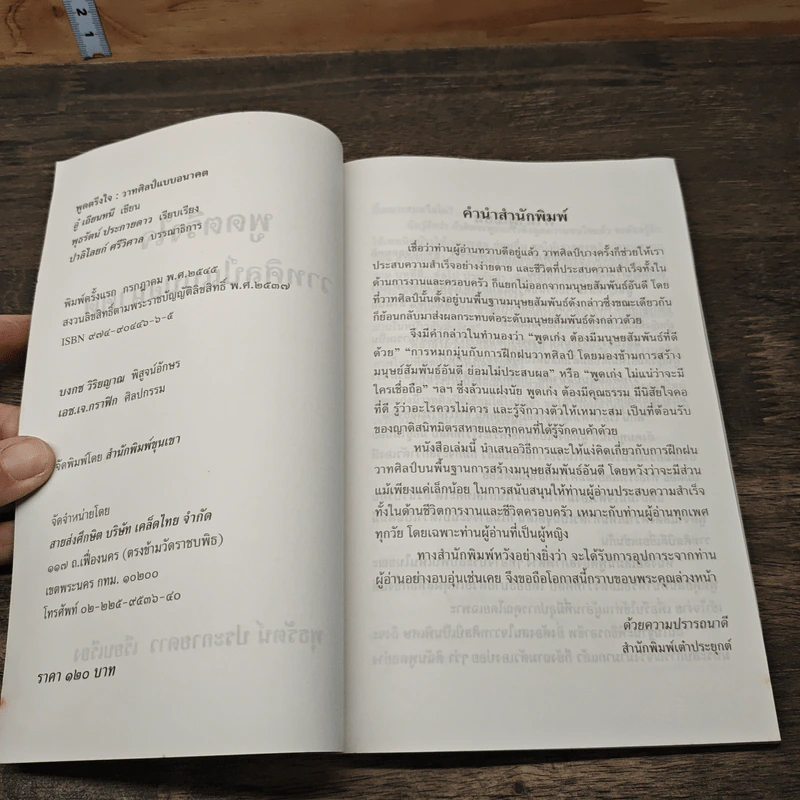 พูดตรึงใจ : วาทศิลป์แบบอนาคต
อู๋ เอียนหนี เขียน
พุธรัตน์ ประกายดาว เรียบเรียง
ปาลิไลยก์ ศรีวิศาล บรรณาธิการ
พิมพ์ครั้งแรก กรกฎาคม พ.ศ.๒๕๔๕
สงวนลิขสิทธิ์ตามพระราชบัญญัติลิขสิทธิ์ พ.ศ.๒๕๓๗
ISBN ๙๗๔-๙๐๕๔๖-๖-๕
บงกช วิริยญาณ พิสูจน์อักษร
เอช.เจ.กราฟิก ศิลปกรรม
จัดพิมพ์โดย สำนักพิมพ์ขุนเขา
จัดจำหน่ายโดย
สายส่งศึกษิต บริษัท เคล็ดไทย จำกัด
๑๑๗ ถ.เฟื่องนคร (ตรงข้ามวัดราชบพิธ)
เขตพระนคร กทม. ๑๐๒๐๐
โทรศัพท์ ๐๒-๒๒๕-๙๕๓๖-๔๐
ราคา ๑๒๐ บาท
คำนำสำนักพิมพ์
เชื่อว่าท่านผู้อ่านทราบดีอยู่แล้ว วาทศิลป์บางครั้งก็ช่วยให้เรา
ประสบความสำเร็จอย่างง่ายดาย และชีวิตที่ประสบความสำเร็จทั้งใน
ด้านการงานและครอบครัว ก็แยกไม่ออกจากมนุษยสัมพันธ์อันดี โดย
ที่วาทศิลป์นั้นตั้งอยู่บนพื้นฐานมนุษยสัมพันธ์ดังกล่าวซึ่งขณะเดียวกัน
ก็ย้อนกลับมาส่งผลกระทบต่อระดับมนุษยสัมพันธ์ดังกล่าวด้วย
จึงมีคำกล่าวในทำนองว่า “พูดเก่ง ต้องมีมนุษยสัมพันธ์ที่ดี
ด้วย” “การหมกมุ่นกับการฝึกฝนวาทศิลป์ โดยมองข้ามการสร้าง
มนุษย์สัมพันธ์อันดี ย่อมไม่ประสบผล” หรือ “พูดเก่ง ไม่แน่ว่าจะมี
ใครเชื่อถือ” ฯลฯ ซึ่งล้วนแฝงนัย พูดเก่ง ต้องมีคุณธรรม มีนิสัยใจคอ
ที่ดี รู้ว่าอะไรควรไม่ควร และรู้จักวางตัวให้เหมาะสม เป็นที่ต้อนรับ
ของญาติสนิทมิตรสหายและทุกคนที่ได้รู้จักคบค้าด้วย
หนังสือเล่มนี้ นำเสนอวิธีการและให้แง่คิดเกี่ยวกับการฝึกฝน
วาทศิลป์บนพื้นฐานการสร้างมนุษยสัมพันธ์อันดี โดยหวังว่าจะมีส่วน
แม้เพียงแค่เล็กน้อย ในการสนับสนุนให้ท่านผู้อ่านประสบความสำเร็จ
ทั้งในด้านชีวิตการงานและชีวิตครอบครัว เหมาะกับท่านผู้อ่านทุกเพศ
ทุกวัย โดยเฉพาะท่านผู้อ่านที่เป็นผู้หญิง
ทางสำนักพิมพ์หวังอย่างยิ่งว่า จะได้รับการอุปการะจากท่าน
ผู้อ่านอย่างอบอุ่นเช่นเคย จึงขอถือโอกาสนี้กราบขอบพระคุณล่วงหน้า
ด้วยความปรารถนาดี
สำนักพิมพ์เต๋าประยุกต์